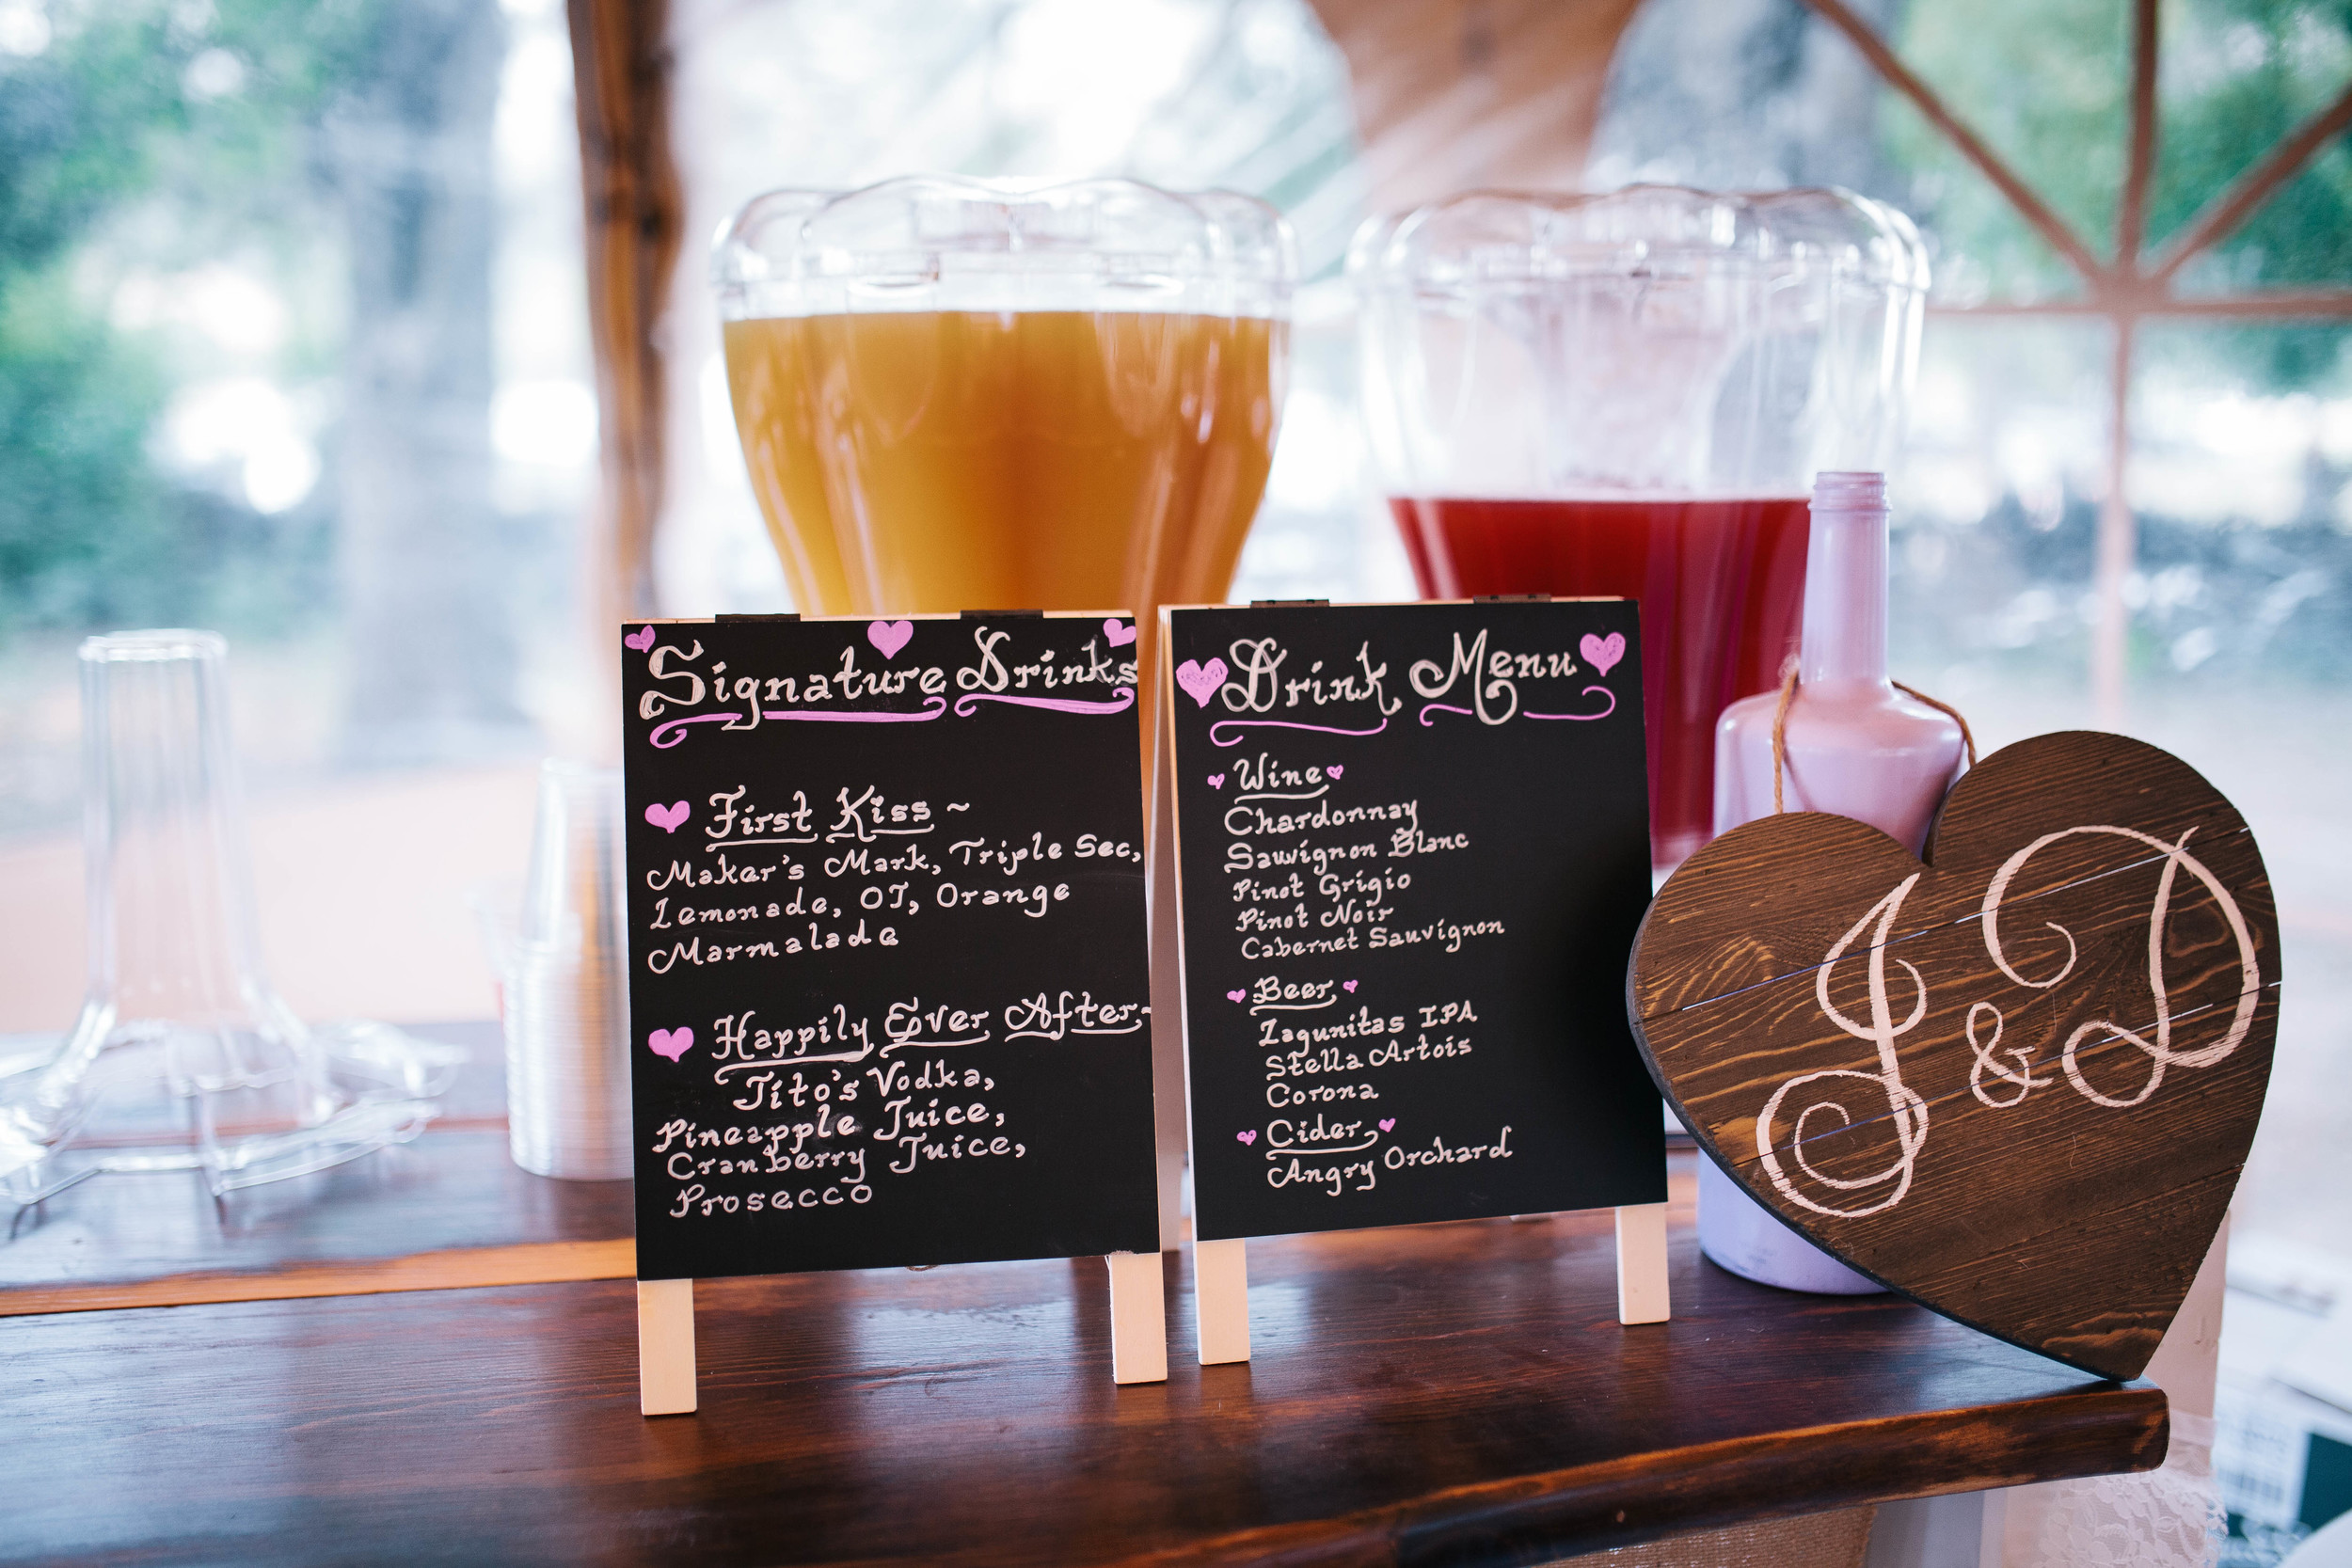 Signature Drinks
First Kiss ~
Maker's Mark, Triple Sec,
Lemonade, OJ, Orange
Marmalade
Happily Ever After~
Tito's Vodka,
Pineapple Juice,
Cranberry Juice,
Prosecco
Drink Menu
Wine
Chardonnay
Sauvignon Blanc
Pinot Grigio
Pinot Noir
Cabernet Sauvignon
Beer
Lagunitas IPA
Stella Artois
Corona
Cider
Angry Orchard
J & D